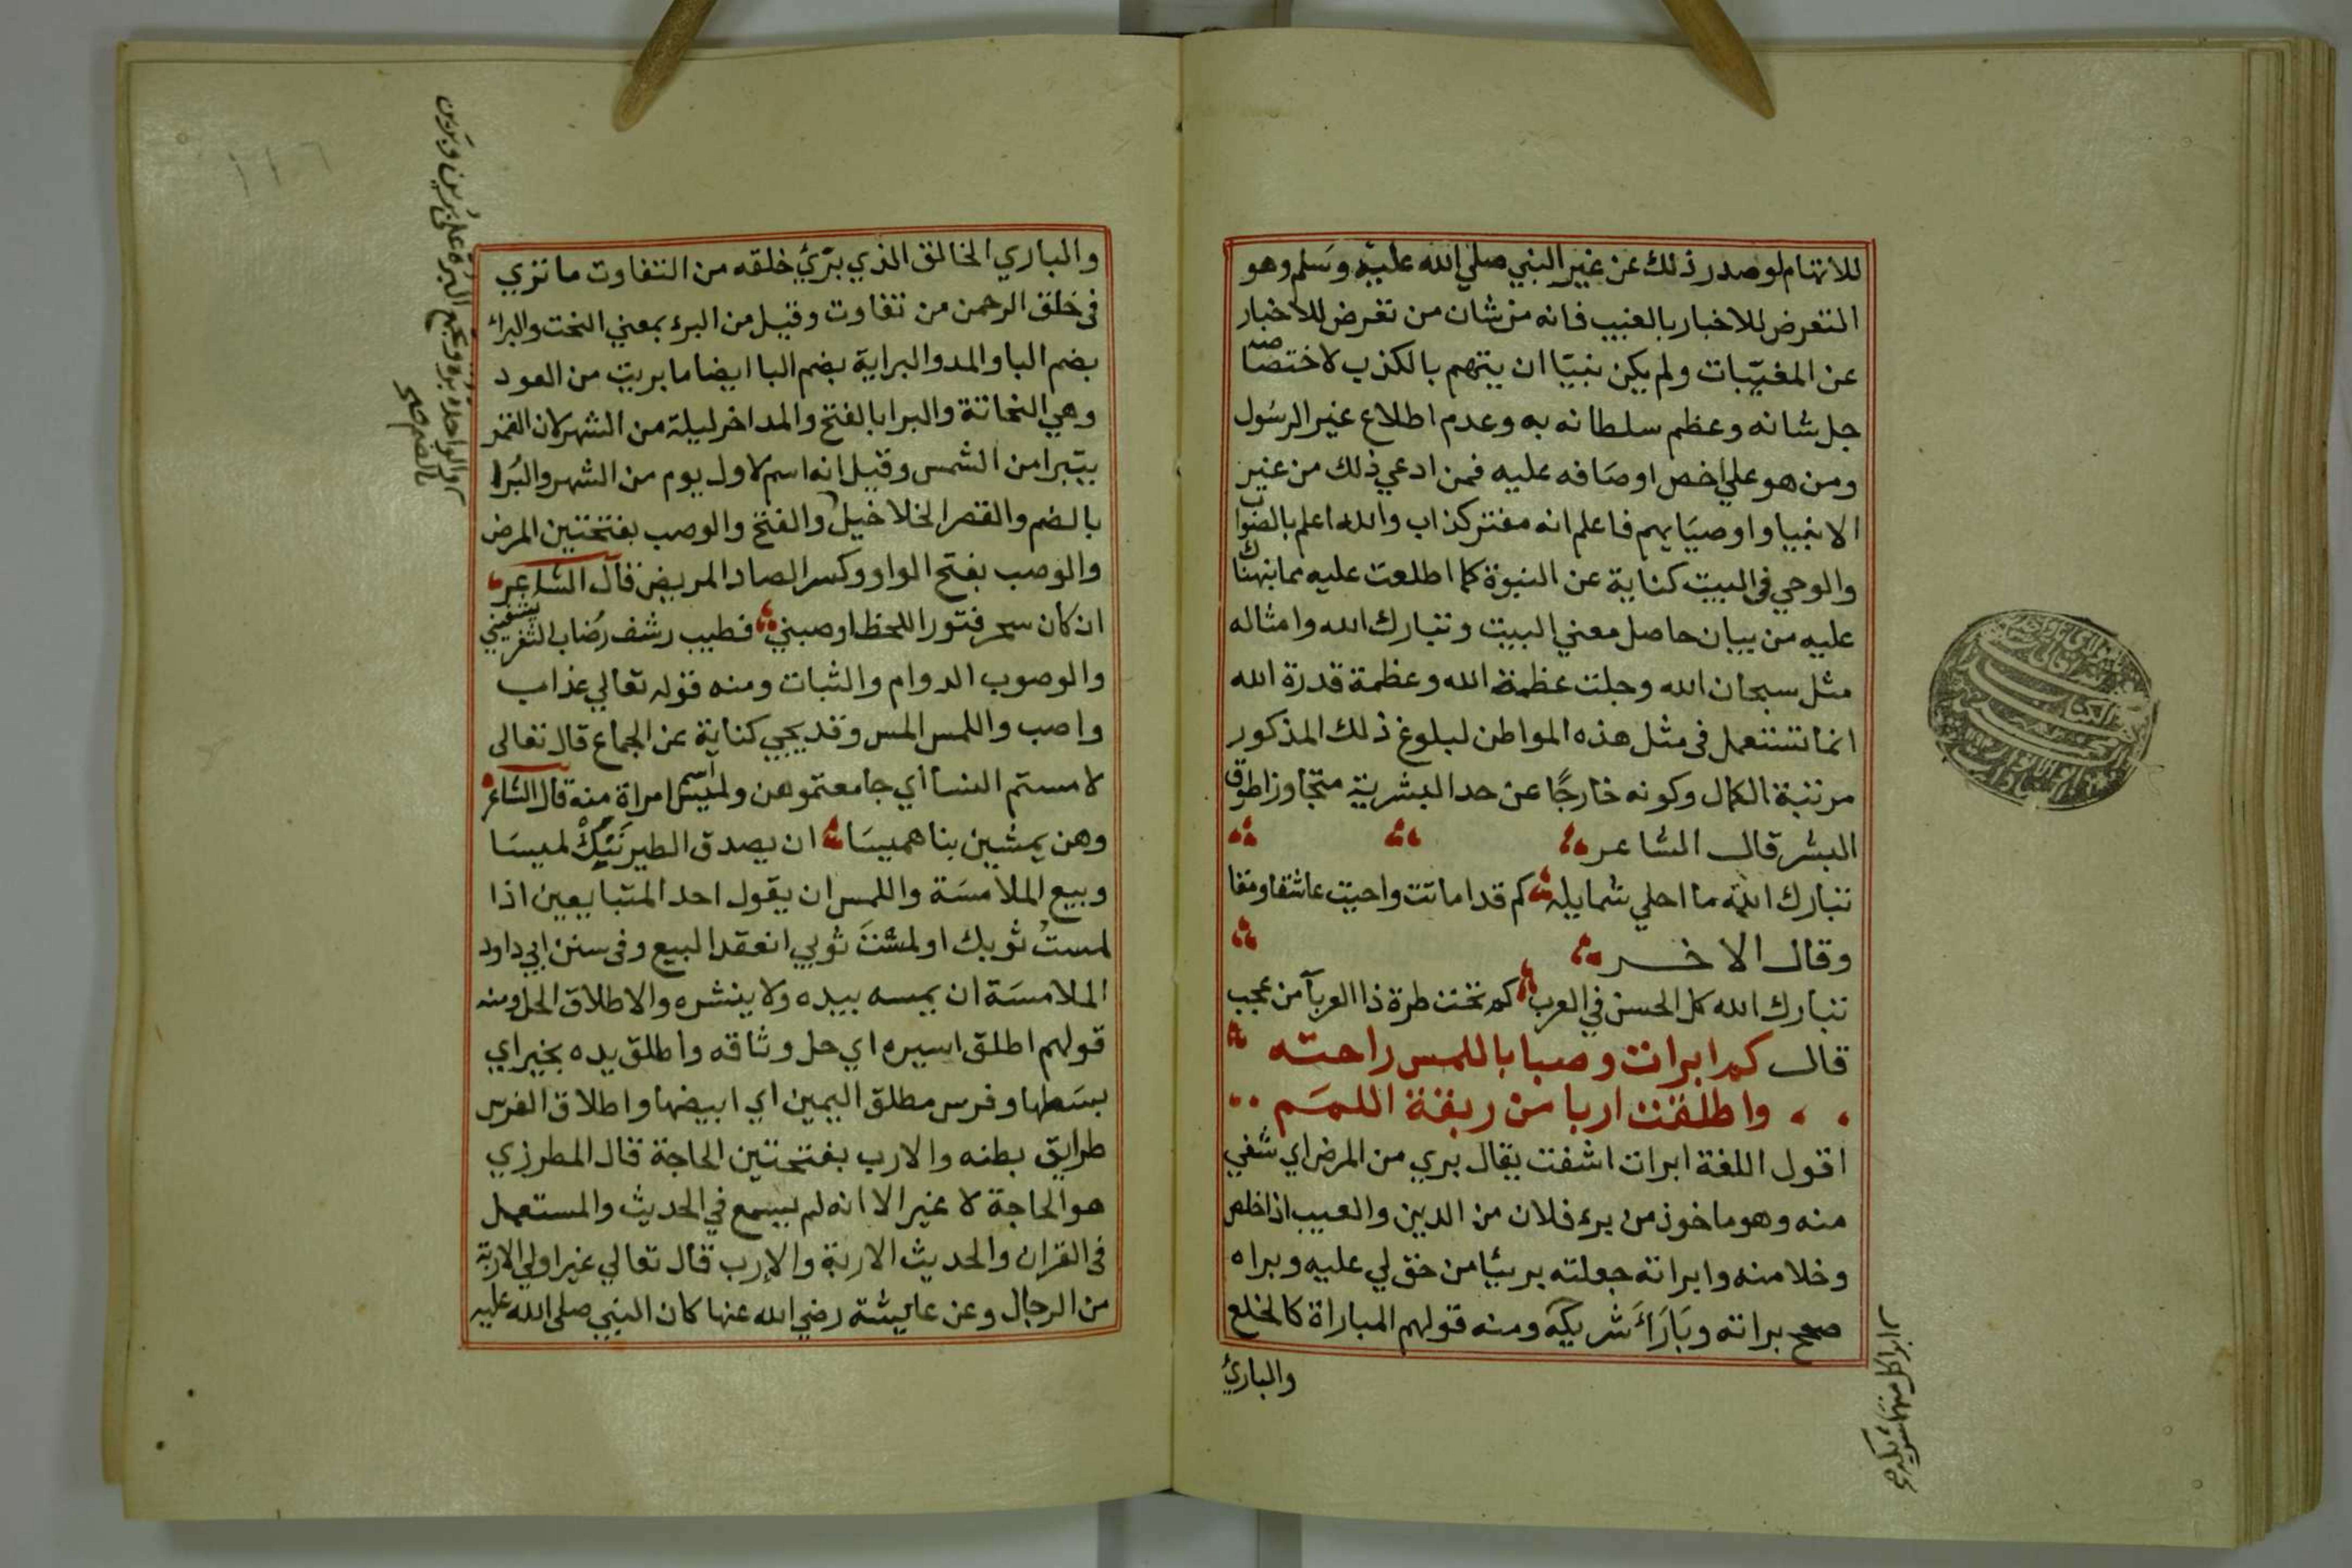 للاتهام لو صدر ذلك عن غير النبي صلي الله عليه وسلم وهو
التعرض للاخبار بالغيب فانه من شان من تعرض للاخبار
عن المغيبات ولم يكن نبيا ان يتهم بالكذب لاختصاصه
جل شانه وعظم سلطانه به وعدم اطلاع غير الرسول
ومن هو علي اخص اوصافه عليه فمن ادعي ذلك من غير
الانبيا واوصيايهم فاعلم انه مفتر كذاب والله اعلم بالصواب
والوحي في البيت كناية عن النبوة كما اطلعت عليه مما نبهناك
عليه من بيان حاصل معني البيت وتبارك الله وامثاله
مثل سبحان الله وجلت عظمة الله وعظمة قدرة الله
انما تستعمل في مثل هذه المواطن لبلوغ ذلك المذكور
مرتبة الكمال وكونه خارجا عن حد البشرية متجاوزا طوق
البشر قال الشاعر
تبارك الله ما احلي شمايله كم قد اماتت واحيت عاشقا ومقا
وقال الاخر
تبارك الله كل الحسن في العرب كم تحت طرة ذا العرب من عجب
قال كم ابرات وصبا باللمس راحته
واطلقت اربا من ربقة اللمم
اقول اللغة ابرات اشفت يقال بري من المرض اي شفي
منه وهو ماخوذ من برء فلان من الدين والعيب اذا خلص
وخلا منه وابراته جعلته بريئا من حق لي عليه وبراه
صحح براته وبَارَأَ شريكه ومنه قولهم المباراة كالخلع
والبارئ
ابرا كل منهما شريكه صح
١١٦
والباري الخالق الذي بَرّئ خلقه من التفاوت ما تري
في خلق الرحمن من تفاوت وقيل من البرء بمعني النحت والبراء
بضم البا والمد والبراية بضم البا ايضا ما بريت من العود
وهي النحاتة والبرا بالفتح والمد اخر ليلة من الشهر لان القمر
يتبرا من الشمس وقيل انه اسم لاول يوم من الشهر والبُرا
بالضم والقصر الخلاخيل والفتح والوصب بفتحتين المرض
والوصب بفتح الواو وكسر الصاد المريض قال الشاعر
ان كان سحر فتور اللحظ اوصبني فطيب رشف رُضاب الثغر يشفيني
والوصوب الدوام والثبات ومنه قوله تعالي عذاب
واصب واللمس المس وقد يجي كناية عن الجماع قال تعالى
لامستم النسا اي جامعتموهن ولميس اسم امراة منه قال الشاعر
وهن يمشين بنا هميسَا ان يصدق الطير نَنِكْ لميسَا
وبيع الملامسَة واللمس ان يقول احد المتبايعين اذا
لمستُ ثوبك او لمستَ ثوبي انعقد البيع وفي سنن ابي داود
الملامسَة ان يمسه بيده ولا ينشره والاطلاق الحل ومنه
قولهم اطلق اسيره اي حل وثاقه واطلق يده بخير اي
بسَطها وفرس مطلق اليمين اي ابيضها واطلاق الفرس
طرايق بطنه والارب بفتحتين الحاجة قال المطرزي
هو الحاجة لا غير الا انه لم يسمع في الحديث والمستعمل
في القران والحديث الاربة والإرب قال تعالي غير اولي الاربة
من الرجال وعن عايشة رضي الله عنها كان النبي صلى الله عليه
والواحدة بُرة وتجمع البُرة على بُرين وبَرين
بالضم صح